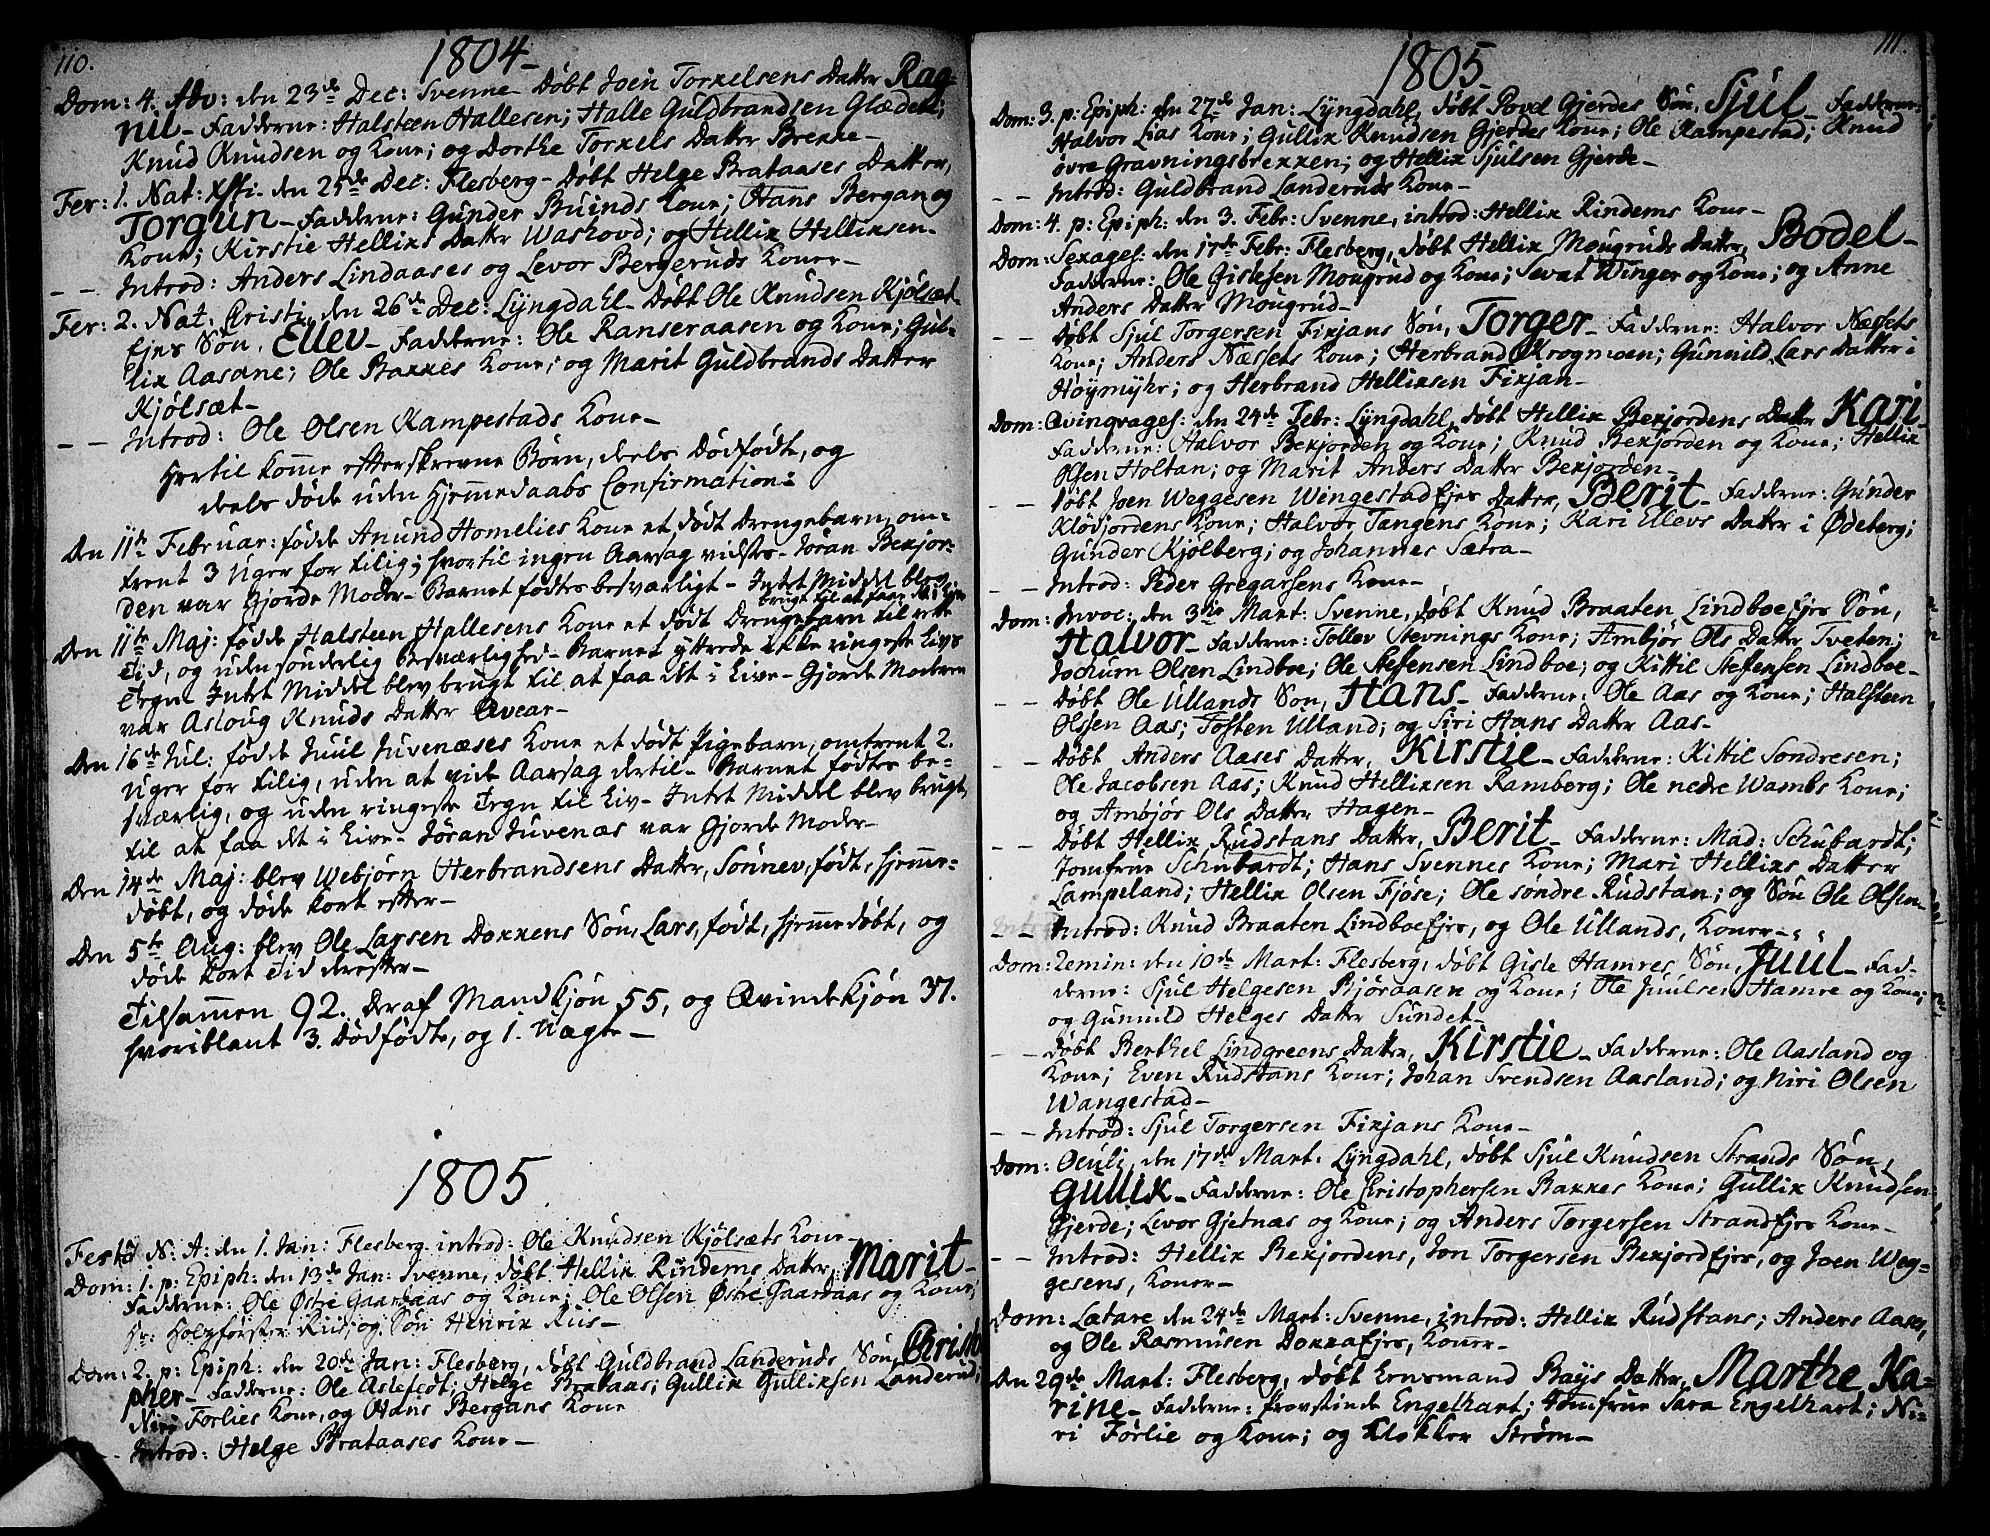 110.
1804
Dom: 4. Adv: den 23de Dec: Svenne Døbt Joen Torkelsens Datter Rag-
nil - Fadderne: Halsteen Hallesen; Halle Guldbrandsen
Knud Knudsen og Kone; og Dorthe Torkels Datter Brekke -
Fer: 1. Nat: Xsti. den 25de Dec: Flesberg - Døbt Helge Brataases Datter,
Torgun - Fadderne: Gunder Buinds Kone; Hans Bergan og
Kone; Kirstie Hellixs Datter Waskovd; og Hellix Hellixsen -
- - Introd: Anders Lindaases og Levor Bergeruds Koner -
Fer: 2. Nat: Cristi, den 26de Dec: Lyngdahl - Døbt Ole Knudsen Kjølsæt-
Ejes Søn, Ellev - Fadderne: Ole Ranseraasen og Kone; Gul-
lix Aasane; Ole Bakkes Kone; og Marit Guldbrands Datter
Kjølsæt -
- - Introd: Ole Olsen Kampestads Kone -
Hertil komme efterskrevne Børn, deels Dødfødte, og
deels døde uden Hjemmedaabs Confirmation:
Den 11te Februar: fødde Anund Homelies Kone et dødt Drengebarn, om-
trent 3 Uger for tilig; hvortil ingen Aarsag vidstes - Jøran Bekjor-
den var Gjorde Moder - Barnet fødtes besværligt - Intet Middel blev
brugt til at faae det i Live
Den 11te Maj: fødde Halsteen Hallesens Kone et dødt Drengebarn til rette
Tid, og uden sønderlig besværlighed - Barnet yttrede ikke ringeste Livs
Tegn Intet Middel blev brugt til at faa det i Live - Gjorde Moderen
var Asloug Knuds Datter Qvear -
Den 16de Jul: fødde Juul Juvenæses Kone et dødt Pigebarn, omtrent 2.
Uger for tilig, uden at vide Aarsag dertil - Barnet fødtes be-
sværlig, og uden ringeste Tegn til Liv - Intet Middel blev brugt
til at faa det i Live - Jøran Juvenæs var Gjorde Moder -
Den 14de Maj: blev Webjørn Herbrandsens Datter, Sønnev, født, hjemme-
døbt, og døde kort efter -
Den 5te Aug: blev Ole Larsen Dokkens Søn, Lars, født, hjemmedøbt, og
døde kort Tid derefter -
Tilsammen 92. Deraf Mandkjøn 55, og Qvindekjøn 37.
hvoriblant 3. Dødfødte, og 1. Uægte -
1805
Festo N: A: den 1. Jan: Flesberg introd: Ole Knudsen Kjølsæts Kone -
Dom: 1. p: Epiph: den 13de Jan: Svenne, døbt Hellix Rindems Datter, Marit -
Fadderne: Ole Østre Gaardaas og Kone; Ole Olsen Østre Gaardaas og Kone;
Hr: Holzførster Riis; og Søn Henrik Riis -
Dom: 2. p: Epiph: den 20de Jan: Flesberg, døbt Guldbrand Landeruds Søn, Christo
pher - Fadderne: Ole Aslefet; Helge Brataas; Gullix Gullixsen Landerud;
Niri Førlies Kone, og Hans Bergans Kone
- Introd: Helge Brataases Kone -
111.
1805
Dom: 3. p: Epiph: den 27de Jan: Lyngdahl, døbt Povel Gjerdes Søn, Sjul - Fadderne:
Halvor Lias Kone; Gullix Knudsen Gjerdes Kone; Ole Kampestad; Knud
øvre Gravningsbrekken; og Hellix Sjulsen Gjerde -
- - Introd: Guldbrand Landeruds Kone -
Dom: 4. p: Epiph: den 3. Febr: Svenne, introd: Hellix Rindems Kone -
Dom: Sexages: den 17de Febr: Flesberg, døbt Hellix Mougruds Datter, Bodel -
Fadderne: Ole Gislesen Mougrud og Kone; Sevat Winger og Kone; og Anne
Anders Datter Mougrud -
- - Døbt Sjul Torgersen Fixjans Søn, Torger - Fadderne: Halvor Næssets
Kone; Anders Næssets Kone; Herbrand Krogmoen; Gunnild Lars Datter i
Høymyhr; og Herbrand Hellixsen Fixjan -
Dom: Qvinqvages: den 24de Febr: Lyngdahl, døbt Hellix Bekjordens Datter Kari -
Fadderne: Halvor Bekjorden og Kone; Knud Bekjorden og Kone; Hellix
Olsen Holtan; og Marit Anders Datter Bekjorden -
- - Døbt Joen Weggesen Wengestadejes Datter, Berit - Fadderne: Gunder
Kløvjordens Kone; Halvor Tangens Kone; Kari Elevs Datter i Ødeberg;
Gunder Kjølberg; og Johannes Sætra -
- - Introd: Peder Gregarsens Kone -
Dom: Invoc: den 3die Mart: Svenne, døbt Knud Braaten Lindboe Ejes Søn,
Halvor - Fadderne: Tollev Stevnings Kone; Ambjør Ols Datter Tveten;
Jochum Olsen Lindboe; Ole Steffensen Lindboe; og Kittil Steffensen Lindboe -
- - Døbt Ole Ullands Søn, Hans - Fadderne: Ole Aas og Kone; Halsteen
Olsen Aas; Tosten Ulland; og Siri Hans Datter Aas -
- - Døbt Anders Aases Datter, Kirstie - Fadderne: Kittil Sondresen;
Ole Jacobsen Aas; Knud Hellixsen Ramberg; Ole nedre Wambs Kone;
og Ambjør Ols Datter Hagen -
- - Døbt Hellix Rudstans Datter, Berit - Fadderne: Mad: Schubardt;
Jomfrue Schubardt; Hans Svennes Kone; Mari Hellixs Datter
Lampeland; Hellix Olsen Fjøse; Ole søndre Rudstan; og Søn Ole Olsen -
- - Introd: Knud Braaten Lindboe Ejes, og Ole Ullands, Koner -
Dom: Remin: den 10de Mart: Flesberg, døbt Gisle Hamres Søn, Juul - Fad-
derne: Sjul Helgesen Bjøraasen og Kone; Ole Juulsen Hamre og Kone;
og Gunnild Helges Datter Sundet -
- - Døbt Berthel Lindgreens Datter, Kirstie - Fadderne: Ole Aasland og
Kone; Even Rudstans Kone; Johan Svendsen Aasland; og Niri Olsen
Wangestad -
- - Introd: Sjul Torgersen Fixjans Kone -
Dom: Oculi, den 17de Mart: Lyngdahl, døbt Sjul Knudsen Strands Søn,
Gullix - Fadderne: Ole Christophersen Bakkes Kone; Gullix Knudsen
Gjerde; Levor Gjetnæs og Kone; og Anders Torgersen Strand Ejes Kone -
- - Introd: Hellix Bekjordens, Jon Torgersen Bekjord Ejes, og Joen Weg-
gesens, Koner -
Dom: Lætare den 24de Mart: Svenne, introd: Hellix Rudstans; Anders Aases,
og Ole Rasmusen Dokka Ejes, Koner -
Den 29de Mart: Flesberg, døbt Ernsmand Bays Datter, Marthe Ka-
rine - Fadderne: Provstinde Engelhart; Jomfrue Sara Engelhart; Ni-
ri Førlie og Kone; og Klokker Strøm -